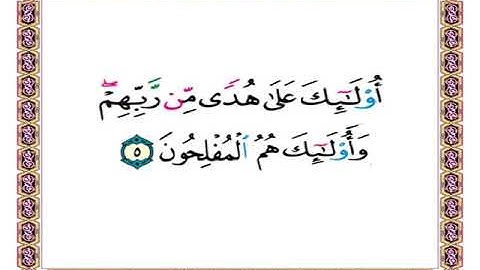 أُوْلَـٰٓئِكَ عَلَىٰ هُدًى مِّن رَّبِّهِمْۖ
وَأُوْلَـٰٓئِكَ هُمُ ٱلْمُفْلِحُونَ ٥